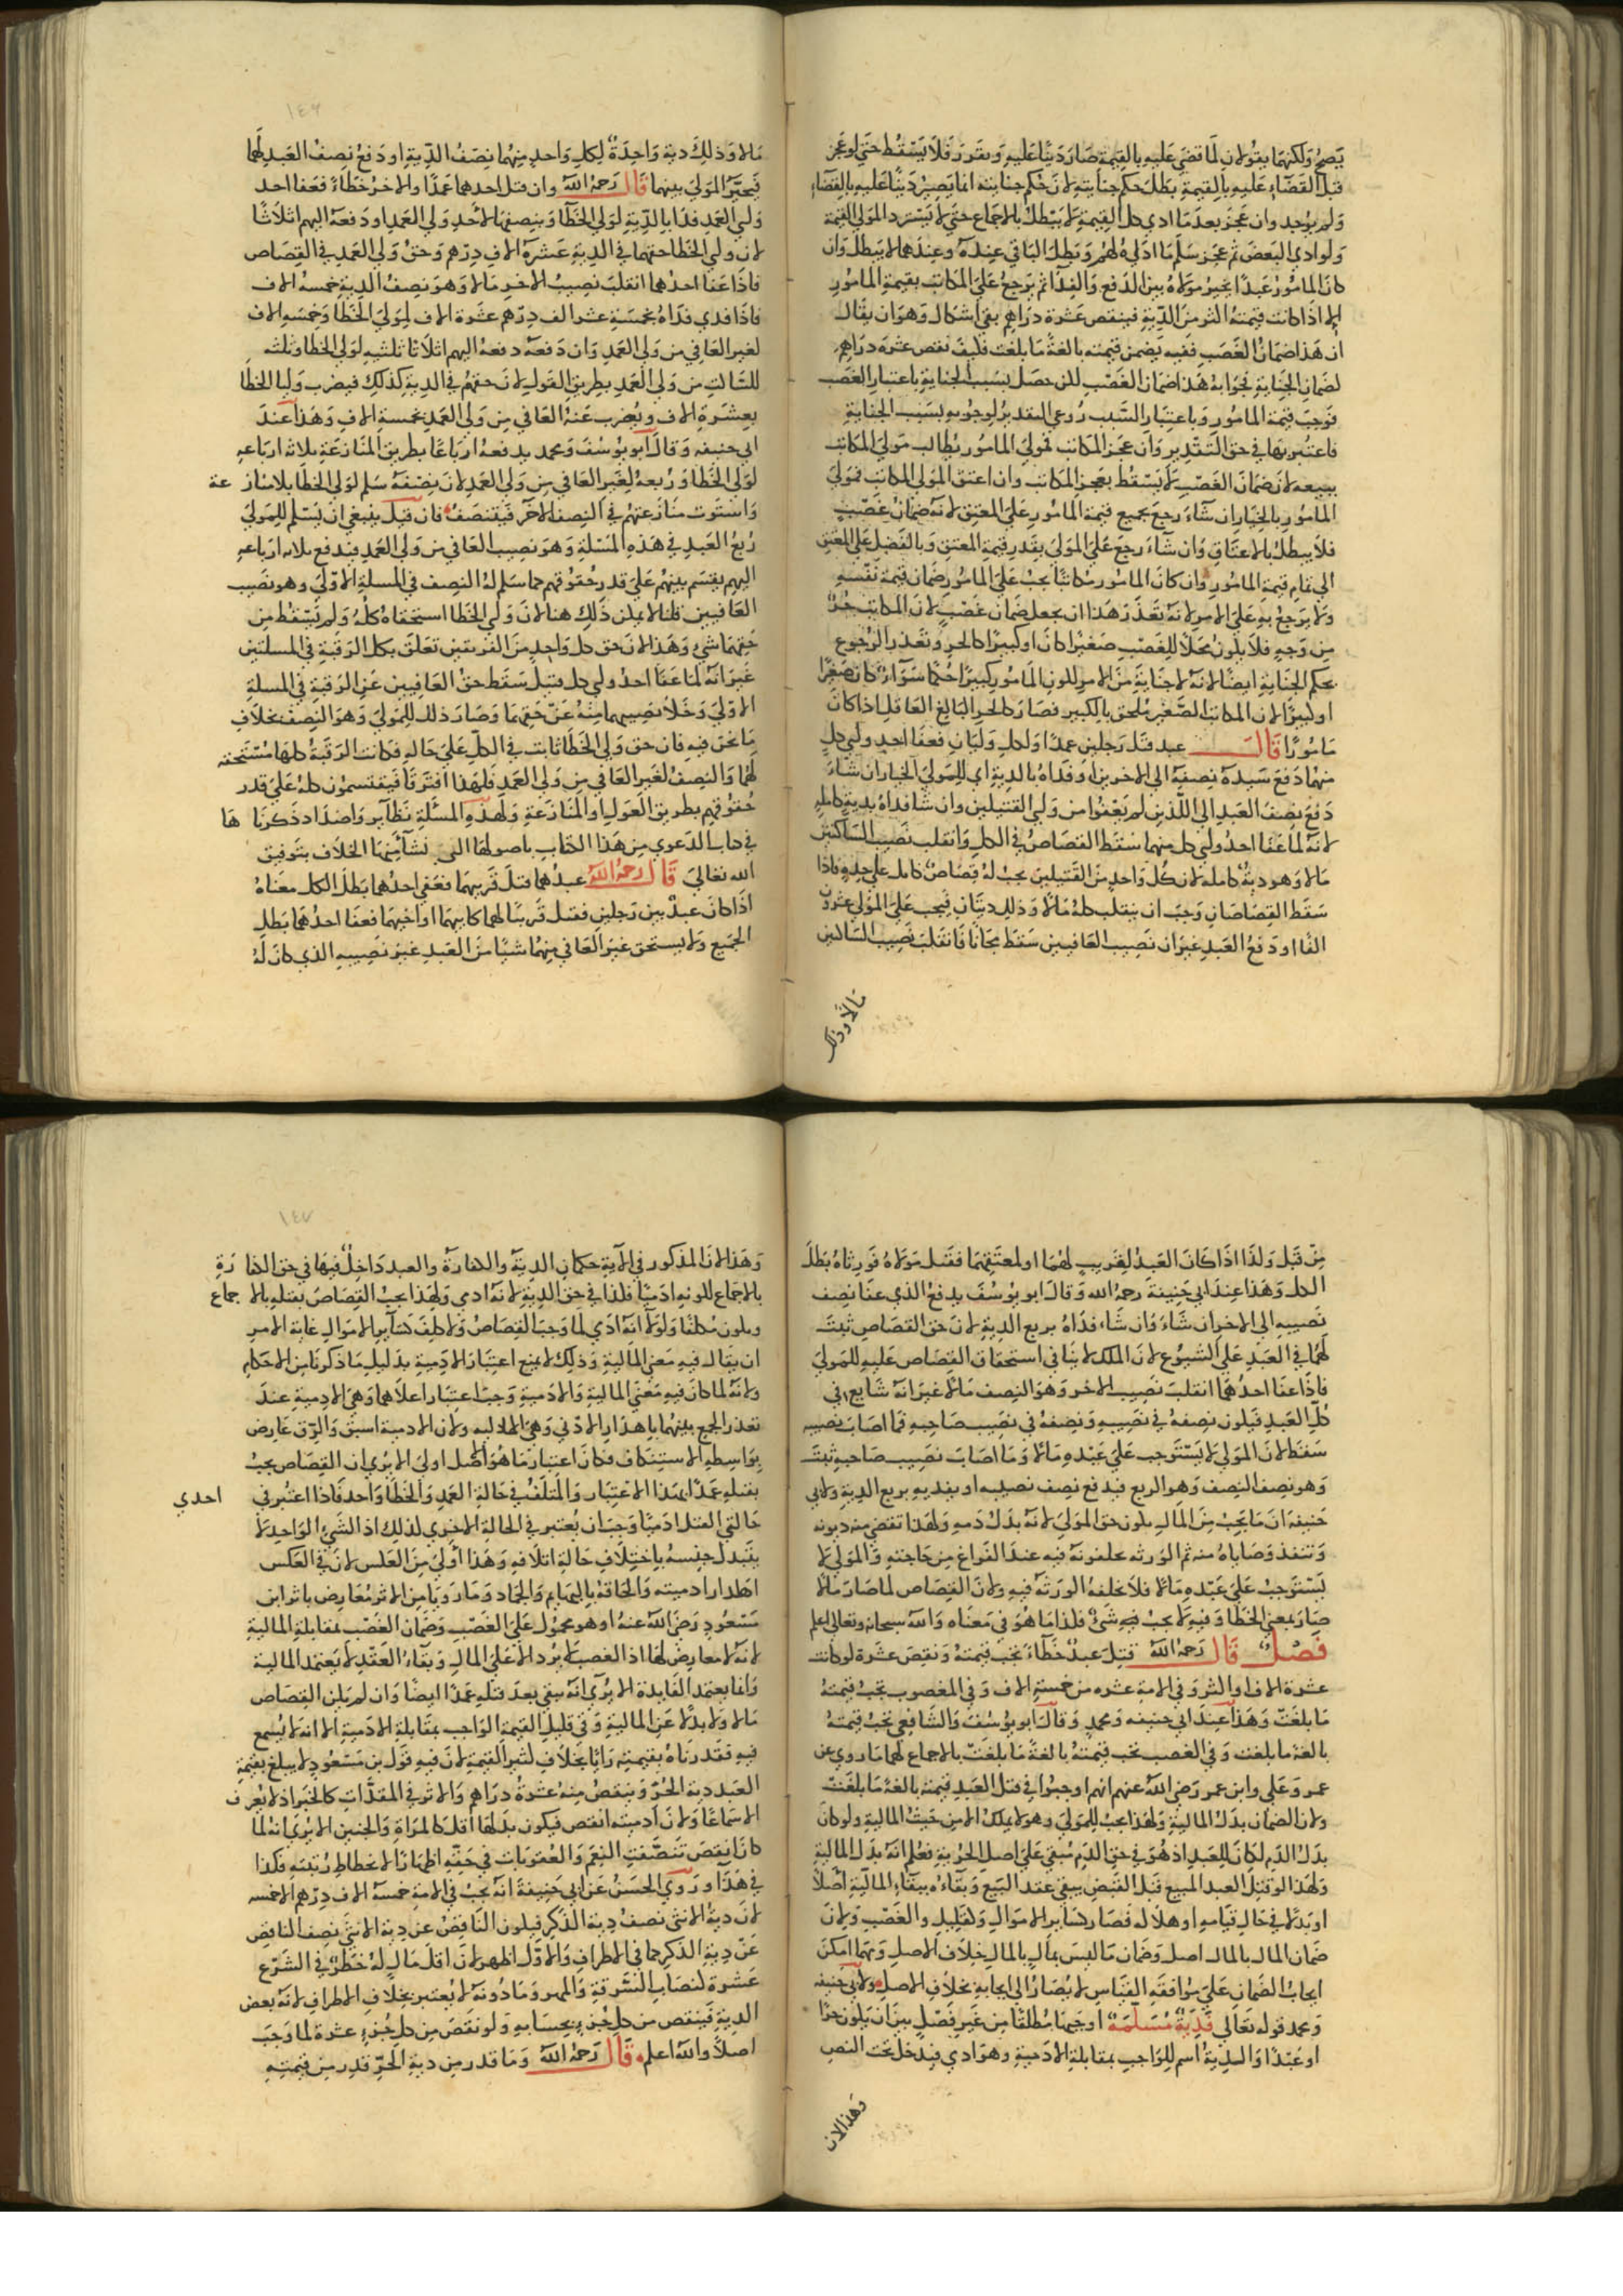 يصح ولكنهما يقولان لما قضي عليه بالقيمة صار دينا عليه وتقرر فلا يسقط حتي لو عجز
قبل القضاء عليه بالقيمة بطل حكم جنايته لان حكم جنايته انما يصير دينا عليه بالقضاء
ولم يوجد وان عجز بعدما ادي كل القيمة لا يبطل بالاجماع حتي لا يسترد المولي القيمة
ولو ادي البعض ثم عجز سلم ما ادي لهم وبطل الباقي عنده وعندهما لا يبطل وان
كان المامور عبدا يخير مولاه بين الدفع والفدا ثم يرجع علي المكاتب بقيمة المامور
الا اذا كانت قيمته اكثر من الدية فينقص عشرة دراهم بقي اشكال وهو ان يقال
ان هذا ضمان الغصب ففيه يضمن قيمته بالغة ما بلغت فكيف نقص عشرة دراهم
لضمان الجناية فجوابه هذا ضمان الغصب لكن حصل بسبب الجناية باعتبار الغصب
فوجب قيمة المامور وباعتبار السبب روعي التقدير لوجوبه بسبب الجناية
فاعتبر بها في حق التقدير وان عجز المكاتب فمولي المامور يطالب مولي المكاتب
ببيعه لان ضمان الغصب لا يسقط بعجز المكاتب وان اعتق المولي المكاتب فمولي
المامور بالخيار ان شاء رجع بجميع قيمة المامور علي المعتق لانه ضمان غصب
فلا يبطل بالاعتاق وان شاء رجع علي المولي بقدر قيمة المعتق وبالفضل علي المعتق
الي تمام قيمة المامور وان كان المامور مكاتبا يجب علي المامور ضمان قيمة نفسه
ولا يرجع به علي الامر لانه تعذر هذا ان يجعل ضمان غصب لان المكاتب حر
من وجه فلا يكون محلا للغصب صغيرا كان او كبيرا كالحر وتعذر الرجوع
بحكم الجناية ايضا لانه لا جناية من الامر لكون المامور كبيرا حكما سواء كان صغيرا
او كبيرا لان المكاتب الصغير ملحق بالكبير فصار كالحر البالغ العاقل اذا كان
مامورا قال عبد قتل رجلين عمدا ولكل وليان فعفا احد وليي كل
منهما دفع سيده نصفه الي الاخرين او فداه بالدية اي للمولي الخيار ان شاء
دفع نصف العبد الي اللذين لم يعفوا من وليي القتيلين وان شا فداه بدية كاملة
لانه لما عفا احد وليي كل منهما سقط القصاص في الكل وانقلب نصيب الساكتين
مالا وهو دية كاملة لان كل واحد من القتيلين يجب له قصاص كامل علي حدة فاذا
سقط القصاصان وجب ان ينقلب كله مالا وذلك ديتان فيجب علي المولي عشرون
الفا او دفع العبد غير ان نصيب العافيين سقط مجانا فانقلب نصيب الساكتين
مالا وذلك
١٤٦
مالا وذلك دية واحدة لكل واحد منهما نصف الدية او دفع نصف العبد لهما
فيخير المولي بينهما قال رحمه الله وان قتل احدهما عمدا والاخر خطاء فعفا احد
وليي العمد فدا بالدية لولي الخطا وبنصفها لاحد وليي العمد او دفعه اليهم اثلاثا
لان وليي الخطا حقهما في الدية عشرة الاف درهم وحق وليي العمد في القصاص
فاذا عفا احدهما انقلب نصيب الاخر مالا وهو نصف الدية خمسة الاف
فاذا فدي فداه بخمسة عشر الف درهم عشرة الاف لوليي الخطا وخمسة الاف
لغير العافي من وليي العمد وان دفعه دفعه اليهم اثلاثا ثلثيه لوليي الخطا وثلثه
للساكت من وليي العمد بطريق العول لان حقهم في الدية كذلك فيضرب وليا الخطا
بعشرة الاف ويضرب عنه العافي من وليي العمد بخمسة الاف وهذا عند
ابي حنيفه وقال ابو يوسف ومحمد يدفعه ارباعا بطريق المنازعة ثلاثة ارباعه
لوليي الخطا وربعه لغير العافي من وليي العمد لان نصفه سلم لوليي الخطا بلا منازعة
واستوت منازعتهم في النصف الاخر فيتنصف فان قيل ينبغي ان يسلم للمولي
ربع العبد في هذه المسلة وهو نصيب العافي من وليي العمد فيدفع ثلاثة ارباعه
اليهم يقسم بينهم علي قدر حقوقهم كما سلم له النصف في المسلة الاولي وهو نصيب
العافيين قلنا لا يمكن ذلك هنا لان وليي الخطا استحقاه كله ولم يسقط من
حقهما شي وهذا لان حق كل واحد من الفريقين تعلق بكل الرقبة في المسلتين
غير انه لما عفا احد وليي كل قتيل سقط حق العافيين عن الرقبة في المسلة
الاولي وخلا نصيبهما منه عن حقهما وصار ذلك للمولي وهو النصف بخلاف
ما نحن فيه فان حق وليي الخطا ثابت في الكل علي حاله فكانت الرقبة كلها مستحقة
لهما والنصف لغير العافي من وليي العمد فلهذا افترقا فيقتسمون كله علي قدر
حقوقهم بطريق العول او المنازعة ولهذه المسئلة نظاير واضداد ذكرناها
في كتاب الدعوي من هذا الكتاب باصولها التي نشا منها الخلاف بتوفيق
الله تعالي قال رحمه الله عبدهما قتل قريبهما فعفي احدهما بطل الكل معناه
اذا كان عبد بين رجلين فقتل قريبا لهما كابيهما او اخيهما فعفا احدهما بطل
الجميع ولا يستحق غير العافي منهما شيا من العبد غير نصيبه الذي كان له
من قبل ولذا اذا كان العبد لقريب لهما او لمعتقهما فقتل مولاه فورثاه بطل
الكل وهذا عند ابي حنيفة رحمه الله وقال ابو يوسف يدفع الذي عفا نصف
نصيبه الي الاخر ان شاء وان شاء فداه بربع الدية لان حق القصاص ثبت
لهما في العبد علي الشيوع لان الملك لا ينافي استحقاق القصاص عليه للمولي
فاذا عفا احدهما انقلب نصيب الاخر وهو النصف مالا غير انه شايع في
كل العبد فيكون نصفه في نصيبه ونصفه في نصيب صاحبه فما اصاب نصيبه
سقط لان المولي لا يستوجب علي عبده مالا وما اصاب نصيب صاحبه ثبت
وهو نصف النصف وهو الربع فيدفع نصف نصيبه او يفديه بربع الدية ولابي
حنيفه ان ما يجب من المال يكون حق المولي لانه بدل دمه ولهذا تقضي منه ديونه
وتنفذ وصاياه منه ثم الورثه يخلفونه فيه عند الفراغ من حاجته والمولي لا
يستوجب علي عبده مالا فلا يخلفه الورثة فيه ولان القصاص لما صار مالا
صار بمعني الخطا وفيه لا يجب فيه شي فلذا ما هو في معناه والله سبحانه وتعالي اعلم
فصل قال رحمه الله قتل عبد خطاء تجب قيمته ونقص عشرة لو كانت
عشرة الاف او اكثر وفي الامة عشره من خمسة الاف وفي المغصوب تجب قيمته
ما بلغت وهذا عند ابي حنيفه ومحمد وقال ابو يوسف والشافعي تجب قيمته
بالغة ما بلغت وفي الغصب تجب قيمته بالغة ما بلغت بالاجماع لهما ما روي عن
عمر وعلي وابن عمر رضي الله عنهم انهم اوجبوا في قتل العبد قيمته بالغة ما بلغت
ولان الضمان بدل المالية ولهذا يجب للمولي وهو لا يملك الا من حيث المالية ولو كان
بدل الدم لكان للعبد اذ هو في حق الدم مبقي علي اصل الحرية فعلم انه بدل المالية
ولهذا لو قتل العبد المبيع قبل القبض يبقي عقد البيع وبقاءه ببقاء المالية اصلا
او بدلا في حال قيامه او هلاكه فصار كساير الاموال وكقليل والغصب ولان
ضمان المال بالمال اصل وضمان ما ليس بمال بالمال خلاف الاصل ومهما امكن
ايجاب الضمان علي موافقة القياس لا يصار الي ايجابه بخلاف الاصل ولابي حنيفه
ومحمد قوله تعالي فدية مسلمة اوجبها مطلقا من غير فصل بين ان يكون حرا
او عبدا والدية اسم للواجب بمقابلة الادمية وهو ادمي فيدخل تحت النص
وهذا لان
١٤٧
وهذا لان المذكور في الاية حكمان الدية والكفارة والعبد داخل فيها في حق الكفارة
بالاجماع لكونه ادميا فكذا في حق الدية لانه ادمي ولهذا يجب القصاص بقتله بالاجماع
ويكون مكلفا ولولا انه ادمي لما وجب القصاص ولا كلف كساير الاموال غاية الامر
ان يقال فيه معني المالية وذلك لا يمنع اعتبار الادمية بدليل ما ذكرنا من الاحكام
ولانه لما كان فيه معني المالية والادمية وجب اعتبار اعلاهما وهي الادمية عند
تعذر الجمع بينهما باهدار الادني وهي المالية ولان الادمية اسبق والرق عارض
بواسطة الاستنكاف فكان اعتبار ما هو اصل اولي الا يري ان القصاص يجب
بقتله عمدا بهذا الاعتبار والمتلف في حالة العمد والخطا واحد فاذا اعتبر في احدي
حالتي القتل ادميا وجب ان يعتبر في الحالة الاخري لذلك اذ الشي الواحد لا
يتبدل جنسه باختلاف حالة اتلافه وهذا اولي من العكس لان في العكس
اهدار ادميته والحاقه بالبهايم والجماد وما رويا من الاثر معارض باثر ابن
مسعود رضي الله عنه او هو محمول علي الغصب وضمان الغصب بمقابلة المالية
لانه لا معارض لها اذ الغصب لا يرد الا علي المال وبقاء العقد لا يعتمد المالية
وانما يعتمد الفايدة الا يري انه يبقي بعد قتله عمدا ايضا وان لم يكن القصاص
مالا ولا بدلا عن المالية وفي قليل القيمة الواجب بمقابلة الادمية الا انه لا يسمع
فيه فقدرناه بقيمته رايا بخلاف كثير القيمة لان فيه قول بن مسعود لا يبلغ بقيمة
العبد دية الحر وينقص منه عشرة دراهم والاثر في المقدرات كالخبر اذ لا يعرف
الا سماعا ولان ادميته انقص فيكون بدلها اقل كالمراة والجنين الا يري انه لما
كان انقص تنصفت النعم والعقوبات في حقه اظهارا لانحطاط رتبته فكذا
في هذا وروي الحسن عن ابي حنيفة انه يجب في الامة خمسة الاف درهم الا خمسه
لان دية الانثي نصف دية الذكر فيكون الناقص عن دية الانثي نصف الناقص
عن دية الذكر كما في الاطراف والاول اظهر لان اقل مال له خطر في الشرع
عشرة لنصاب السرقة والمهر وما دونه لا يعتبر بخلاف الاطراف لانه بعض
الدية فينقص من كل جزء بحسابه ولو نقص من كل جزء عشرة لما وجب
اصلا والله اعلم قال رحمه الله وما قدر من دية الحر قدر من قيمته